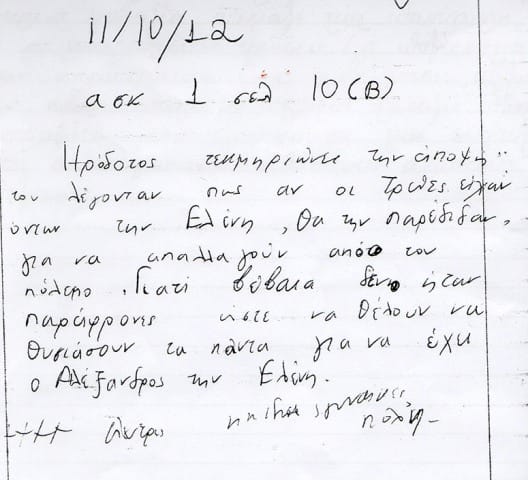 11/10/12
ασκ 1 σελ 10(Β)
Ηρόδοτος τεκμηριώνει την άποψη
του λέγονταν πως αν οι Τρώες είχαν
όντων την Ελένη, θα την παρέδιδαν,
για να απαλλαγούν από τον
πόλεμο. Γιατί βέβαια δεν ήταν
παράφρονες ώστε να θέλουν να
θυσιάσουν τα πάντα για να έχει
ο Αλέξανδρος την Ελένη.
πόλη